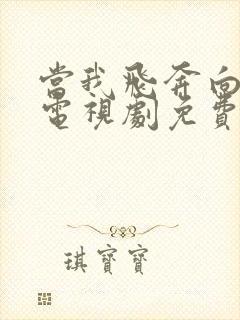 當我飛奔向
電視劇免費
琪寶寶